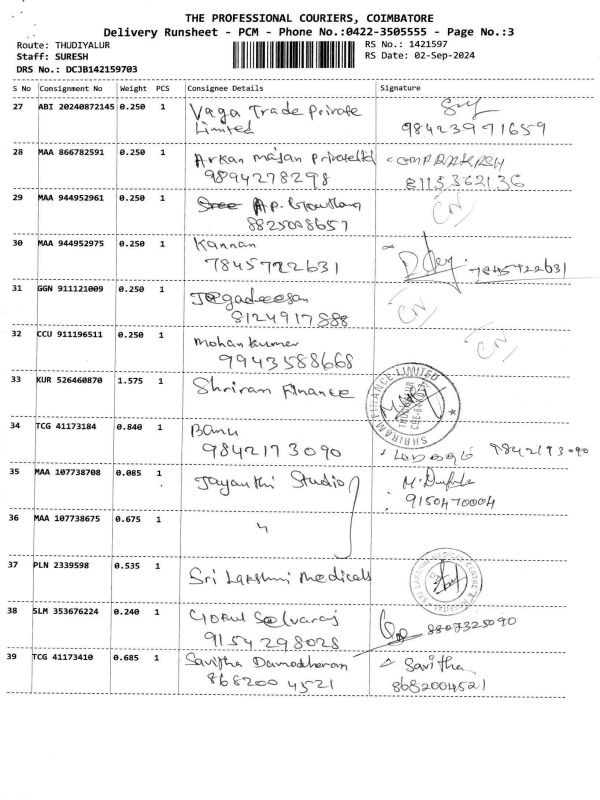 THE PROFESSIONAL COURIERS, COIMBATORE
Delivery Runsheet - PCM - Phone No.:0422-3505555 - Page No.:3
Route: THUDIYALUR RS No.: 1421597
Staff: SURESH RS Date: 02-Sep-2024
DRS No.: DCJB142159703
S No Consignment No Weight PCS Consignee Details Signature
27 ABI 20240872145 0.250 1 Vaga Trade Private
Limited 98423971659
28 MAA 866782591 0.250 1 Arkan majan Private ltd OMPRAKASH
9894278298 8115362136
29 MAA 944952961 0.250 1 A.p. Gowtham CN
8825008657
30 MAA 944952975 0.250 1 Kannan
7845722631 7845722631
31 GGN 911121009 0.250 1 Jagadeesan CN
8124917888
32 CCU 911196511 0.250 1 mohan kumar CN
9943588668
33 KUR 526460870 1.575 1 Shriram Finance SHRIRAM FINANCE LIMITED
THUDIYALUR
34 TCG 41173184 0.840 1 Banu
9842173090 9842173090
35 MAA 107738708 0.085 1 Jayanthi Studio
9150470004
36 MAA 107738675 0.675 1 "
37 PLN 2339598 0.535 1 Sri Lakshmi medicals SRI LAKSHMI MEDICAL CENTRE & HOSPITAL
38 SLM 353676224 0.240 1 Gokul Selvaraj 8807325090
9154298028
39 TCG 41173410 0.685 1 Savitha Damodharan Savitha
8682004521 8682004521